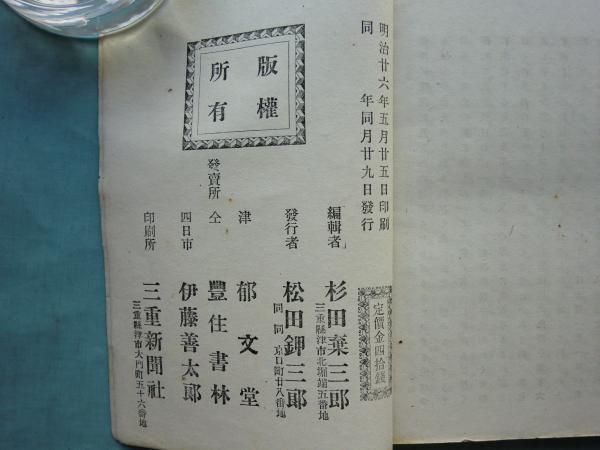 明治廿六年五月廿五日印刷
同年同月廿九日發行
定價金四拾錢
版權
所有
編輯者
杉田棄三郎
三重縣津市北堀端五番地
發行者
松田鉀三郎
同同京口町廿八番地
發賣所
津
郁文堂
仝
豐住書林
四日市
伊藤善太郎
印刷所
三重新聞社
三重縣津市大門町五十六番地